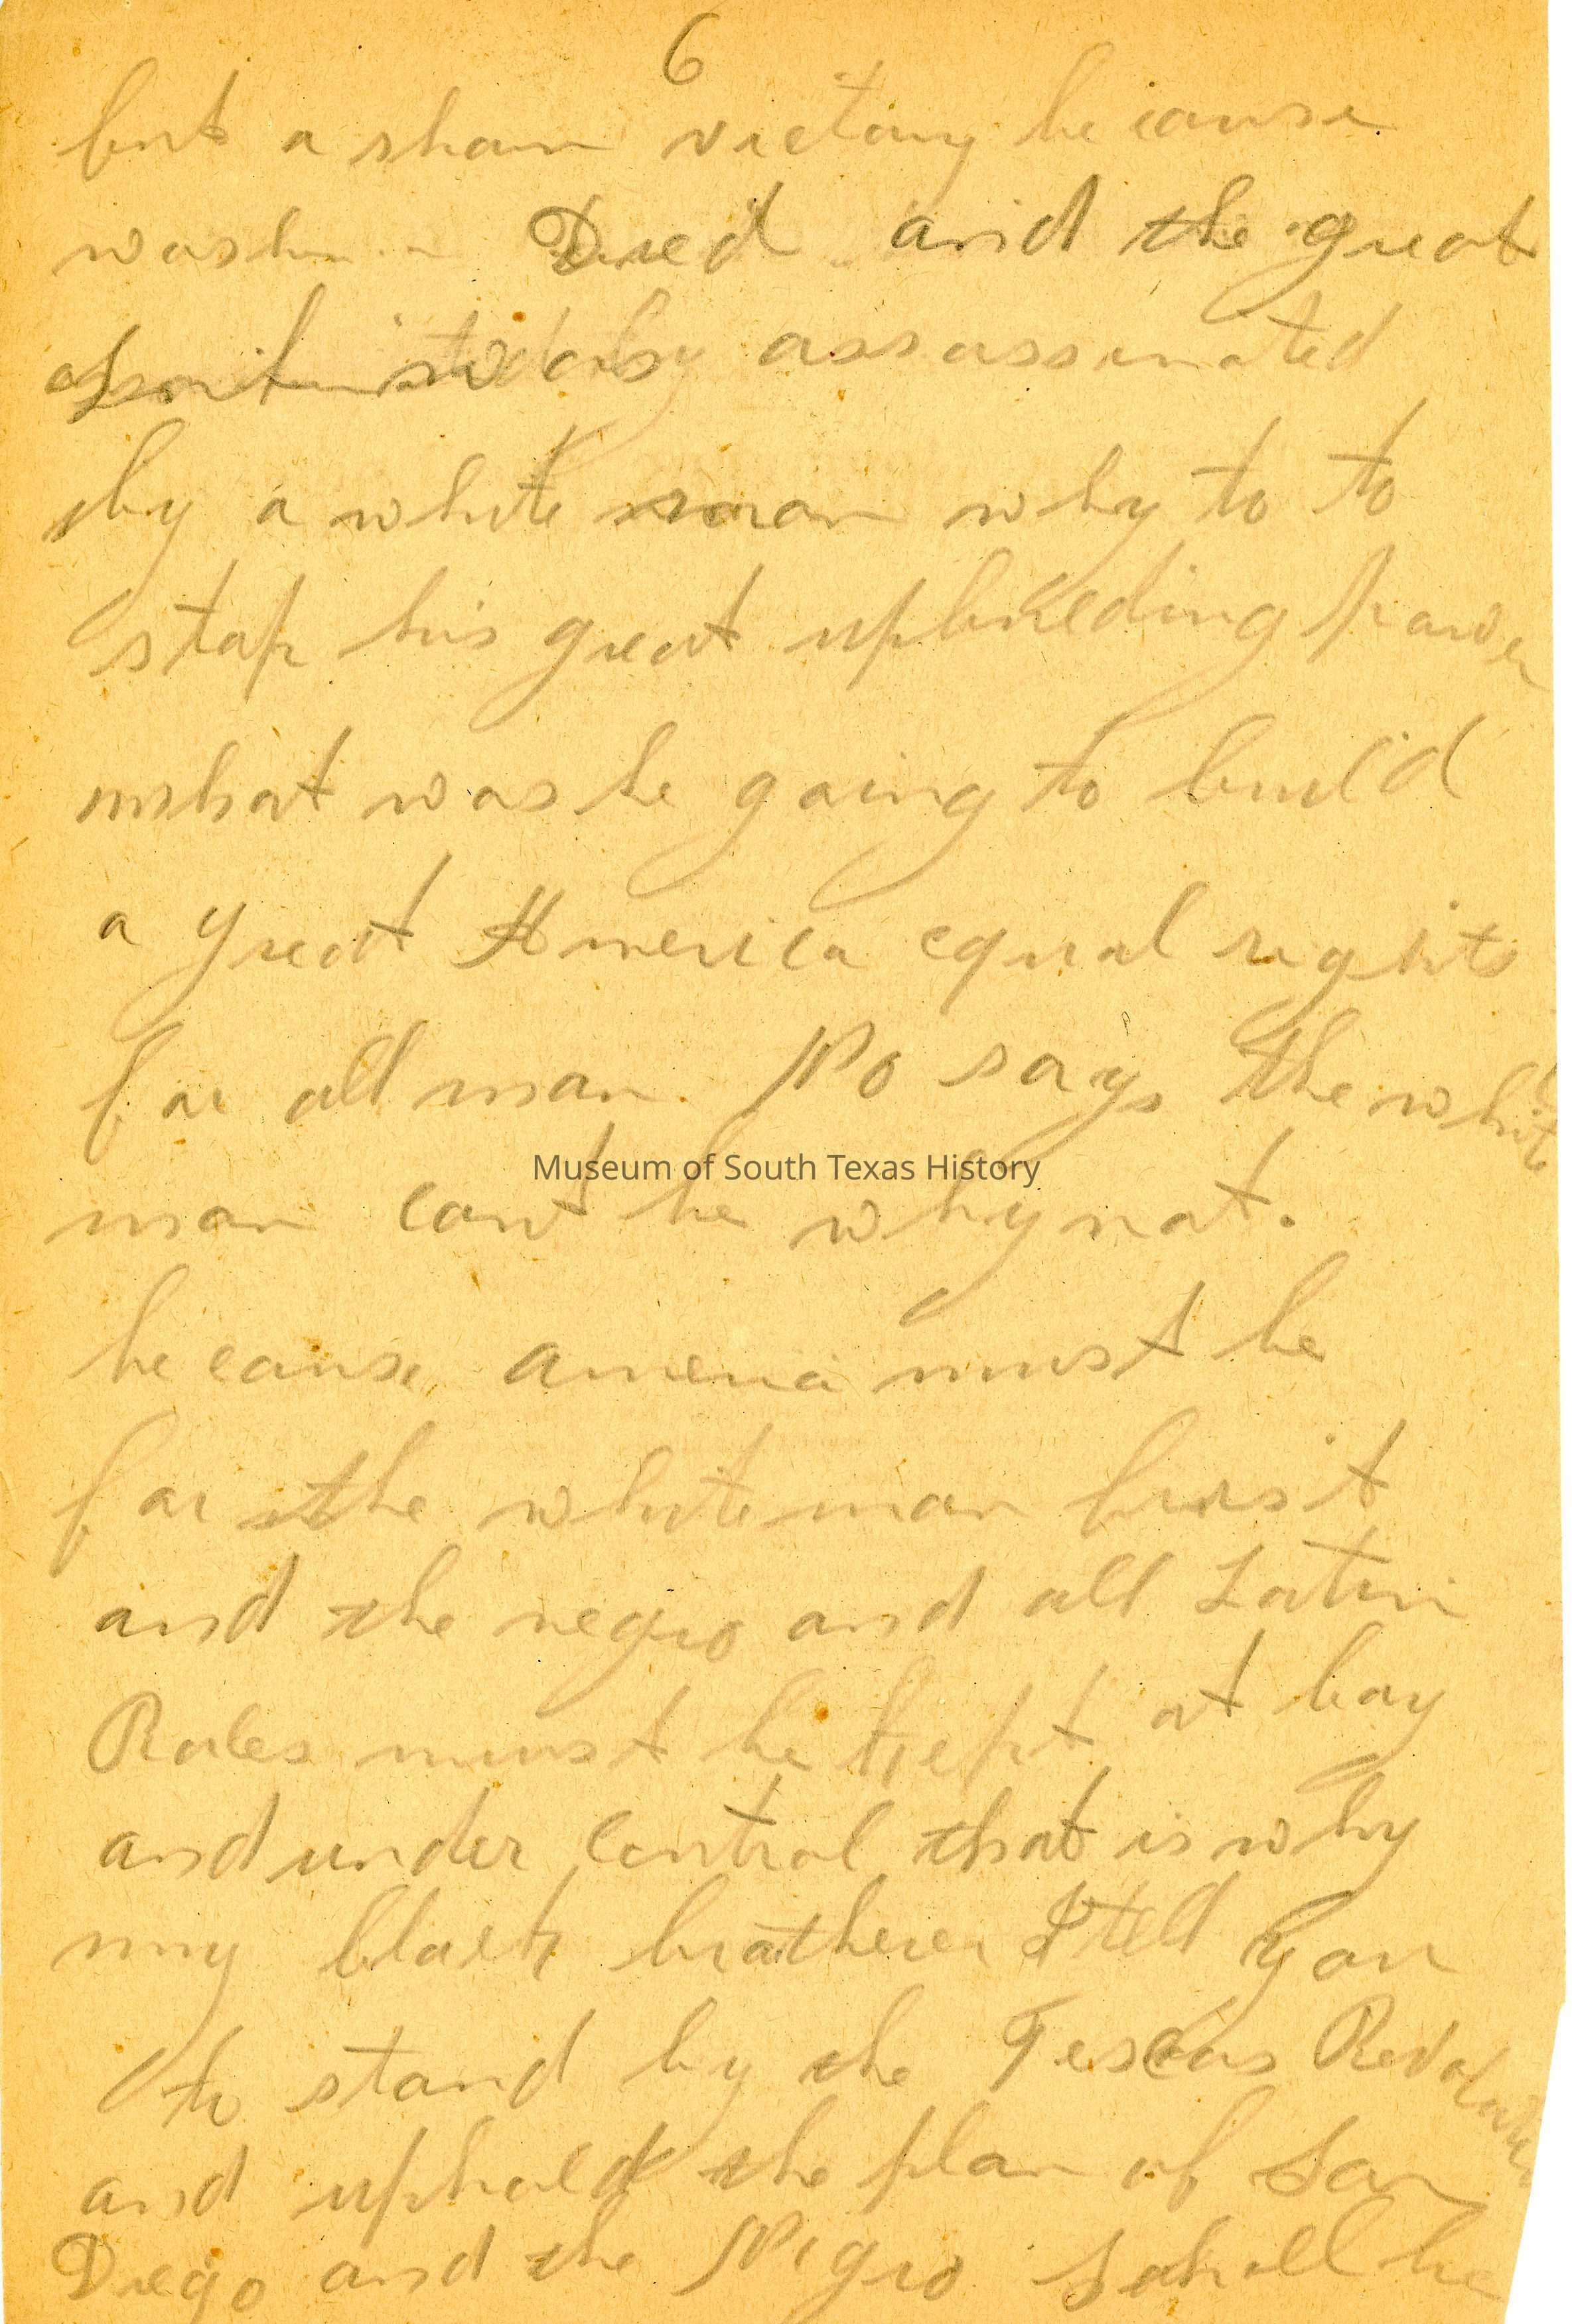 6
but a sham victory because
Died and the great
was assassinated
by a white man why to to
stop his great upbuilding power
what was he going to build
a great America equal rights
for all man. No says the white
Museum of South Texas History
man cant be why not.
because ameria must be
for the white man first
and the negro and all Latin
Rales must be kept at bay
and under control that is why
my black brotheren I tell you
to stand by the Texas
and uphold the plan of San
Diego and the Nigro Sahall be